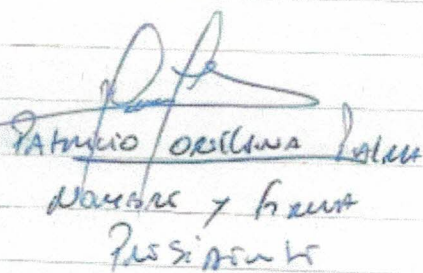 Patricio Orellana Palma
Nombre y Firma
Presidente